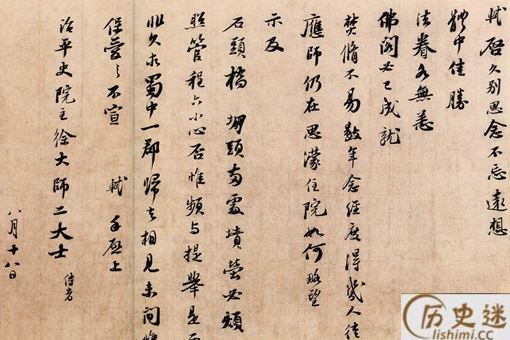 軾啓久別思念不忘遠想
體中佳勝
法眷各無恙
佛閣必已成就
焚脩不易數年念經度得幾人徒
應師仍在思濛住院如何略望
示及
石頭橋堋頭兩處墳塋必煩
照管程六小心否惟頻與提舉是
非久求蜀中一郡歸去相見未間惟
保愛之不宣 軾手啓上
治平史院主徐大師二大士 侍者
八月十八日
历史迷
lishimi.cc